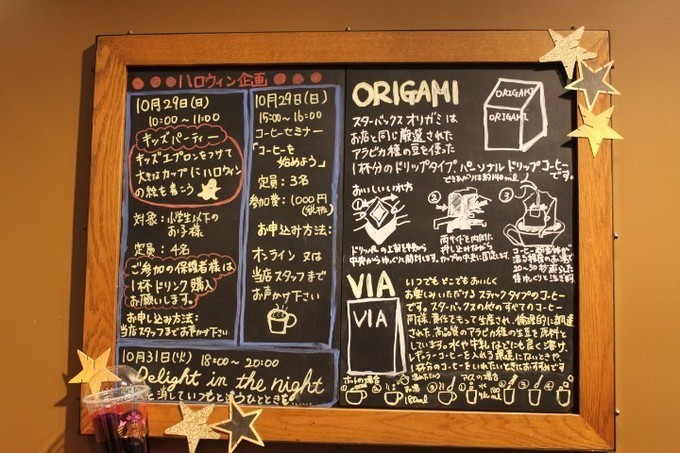 ハロウィン企画
10月29日(日)
10:00～11:00
キッズパーティー
キッズエプロンをつけて
大きなカップにハロウィン
の絵を書こう
対象：小学生以下の
お子様
定員：4名
ご参加の保護者様は
1杯ドリンク購入
お願いします。
お申し込み方法：
当店スタッフまでお声かけ下さい
10月29日(日)
15:00～16:00
コーヒーセミナー
「コーヒーを
始めよう」
定員：3名
参加費：1000円
(税抜)
お申込み方法：
オンライン 又は
当店スタッフまで
お声かけ下さい
10月31日(火) 18:00～20:00
Delight in the night
ORIGAMI
スターバックス オリガミ は
お店と同じ厳選された
アラビカ種の豆を使った
1杯分のドリップタイプ、パーソナルドリップコーヒー
です。
できあがりは約140ml
ORIGAMI
ORIGAMI
おいしいいれ方
①
②
③
両サイドを内側に
押し込みながら
カップの中央に固定します。
20～30秒蒸らした
VIA
VIA
いつでもどこでもおいしく
お楽しみいただける スティックタイプのコーヒー
です。スターバックスの他のすべてのコーヒー
同様、責任をもって生産され、倫理的に調達
された、高品質のアラビカ種の生豆を原料と
しています。水や牛乳などにも良く溶け、
レギュラーコーヒーを入れる環境にないときや、
1杯分のコーヒーをいれたいときにおすすめです
ホットの場合
アイスの場合
180ml